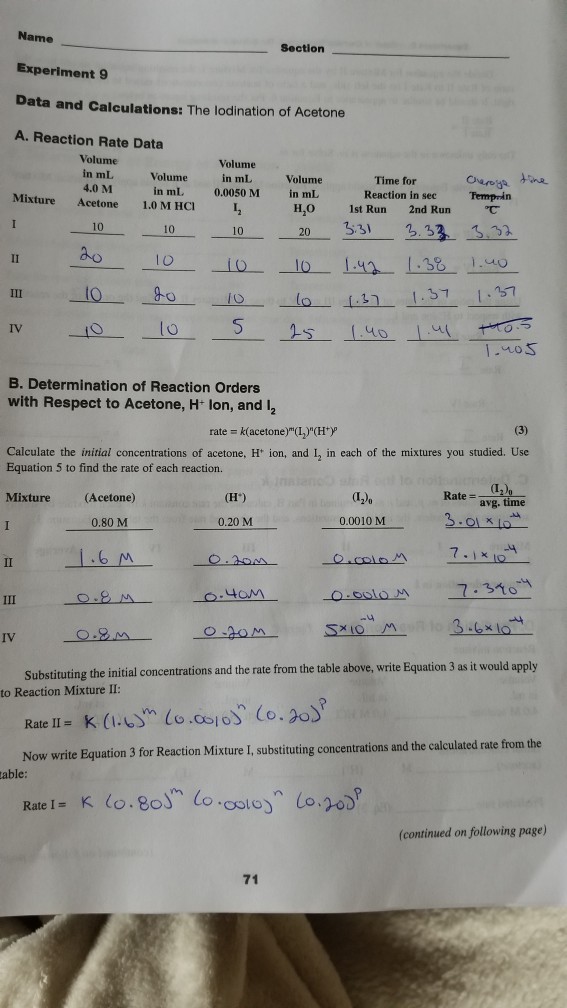 Name
Section
Experiment 9
Data and Calculations: The Iodination of Acetone
A. Reaction Rate Data
Mixture Volume in mL 4.0 M Acetone Volume in mL 1.0 M HCl Volume in mL 0.0050 M I₂ Volume in mL H₂O Time for Reaction in sec 1st Run 2nd Run Temp. in °C time
I 10 10 10 20 3.31 3.33 3.32
II 20 10 10 10 1.42 1.38 1.40
III 10 20 10 10 1.37 1.37 1.37
IV 10 10 5 25 1.40 1.41
1.405
B. Determination of Reaction Orders
with Respect to Acetone, H⁺ Ion, and I₂
rate = k(acetone)ᵐ(I₂)ⁿ(H⁺)ᵖ (3)
Calculate the initial concentrations of acetone, H⁺ ion, and I₂ in each of the mixtures you studied. Use
Equation 5 to find the rate of each reaction.
Mixture (Acetone) (H⁺) (I₂)₀ Rate = (I₂)₀ / avg. time
I 0.80 M 0.20 M 0.0010 M 3.01 × 10⁻⁴
II 1.6 M 0.20M 0.0010M 7.1 × 10⁻⁴
III 0.8 M 0.40M 0.0010 M
IV 0.8M 0.20M 5×10⁻⁴ M 3.6×10⁻⁴
Substituting the initial concentrations and the rate from the table above, write Equation 3 as it would apply
to Reaction Mixture II:
Rate II = K (1.6)ᵐ (0.0010)ⁿ (0.20)ᵖ
Now write Equation 3 for Reaction Mixture I, substituting concentrations and the calculated rate from the
table:
Rate I = K (0.80)ᵐ (0.0010)ⁿ (0.20)ᵖ
(continued on following page)
71